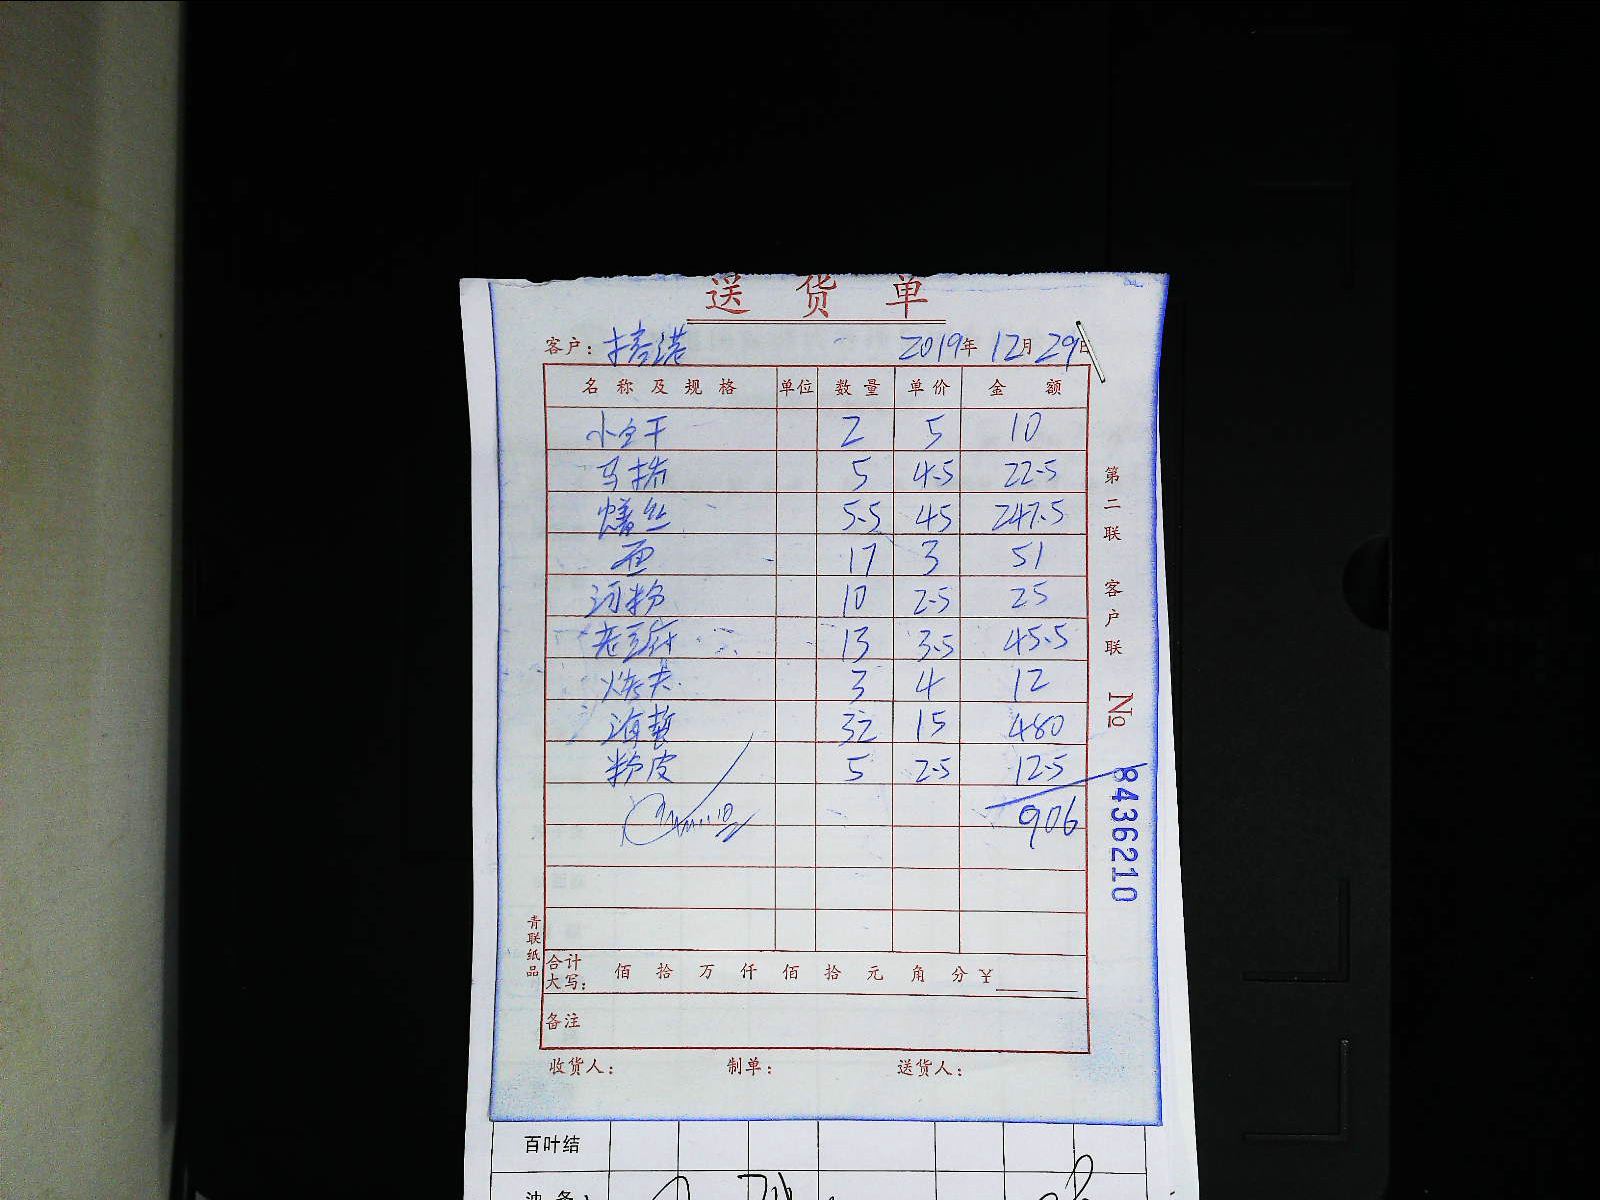 送货单
客户： 2019年12月29日
名称及规格 单位 数量 单价 金额
小白干 2 5 10
马 5 4.5 22.5
丝 5.5 45 247.5
面 17 3 51
河粉 10 2.5 25
老豆腐 13 3.5 45.5
烤夫 3 4 12
海蜇 32 15 480
粉皮 5 2.5 12.5
906
合计大写： 佰 拾 万 仟 佰 拾 元 角 分 ￥
备注
收货人： 制单： 送货人：
青联纸品
第二联 客户联 No 8436210
百叶结